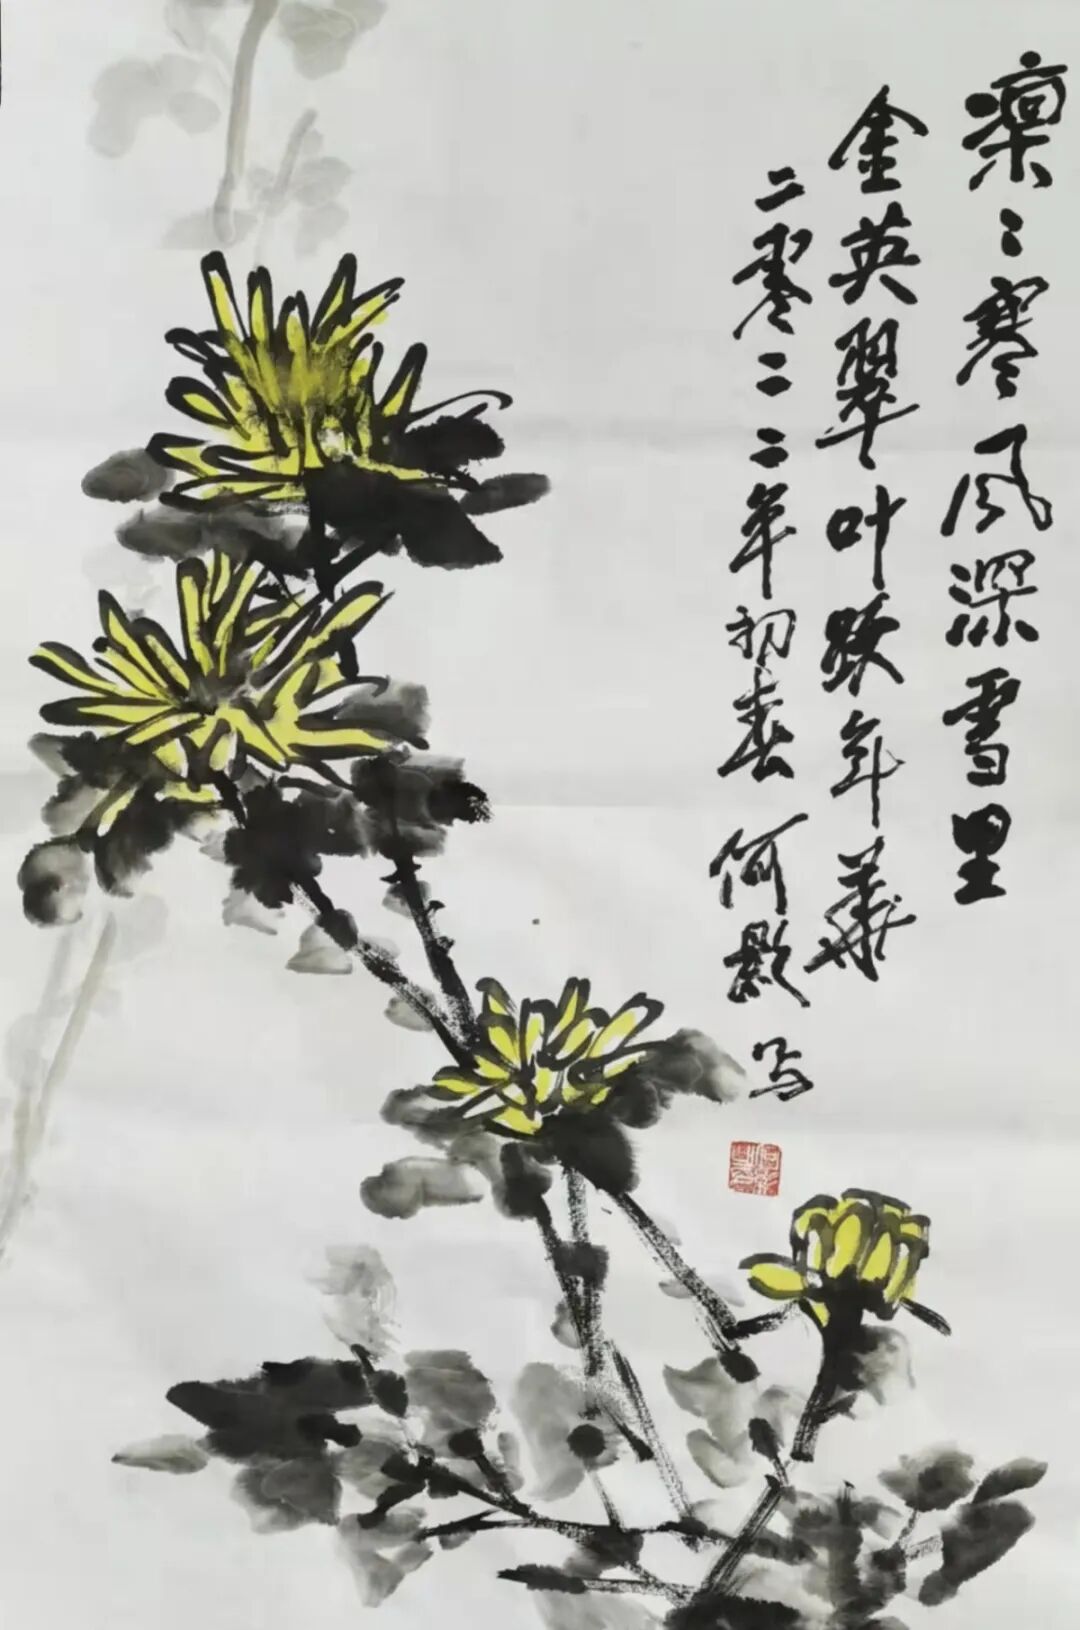 凛〻寒风深雪里
金英翠叶跃年华
二零二二年初春 何影 写